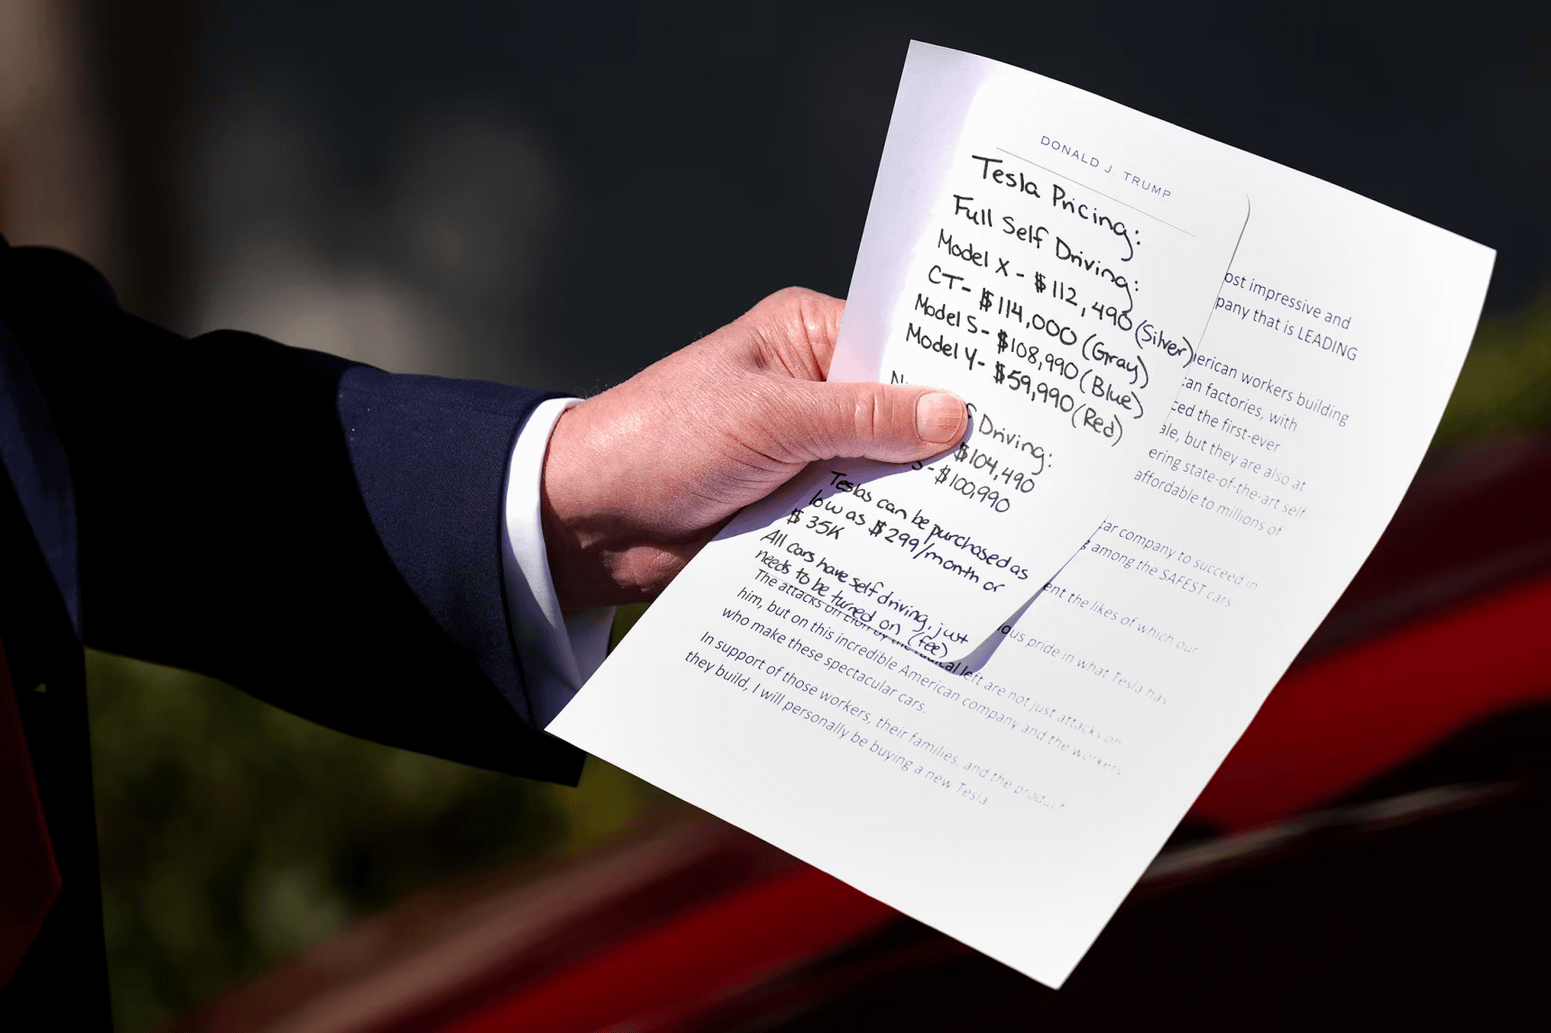 DONALD J. TRUMP
Tesla Pricing:
Full Self Driving:
Model X - $112,490 (Silver)
CT - $114,000 (Gray)
Model S - $108,990 (Blue)
Model Y - $59,990 (Red)
Driving:
$104,490
S - $100,990
Teslas can be purchased as
low as $299/month or
$35K
All cars have self driving, just
needs to be turned on (fee)
ost impressive and
pany that is LEADING
erican workers building
can factories, with
ced the first-ever
ale, but they are also at
ering state-of-the-art self-
affordable to millions of
ar company to succeed in
among the SAFEST cars
ent the likes of which our
ous pride in what Tesla has
The attacks on Elon by the radical left are not just attacks on
him, but on this incredible American company and the workers
who make these spectacular cars.
In support of those workers, their families, and the product
they build, I will personally be buying a new Tesla